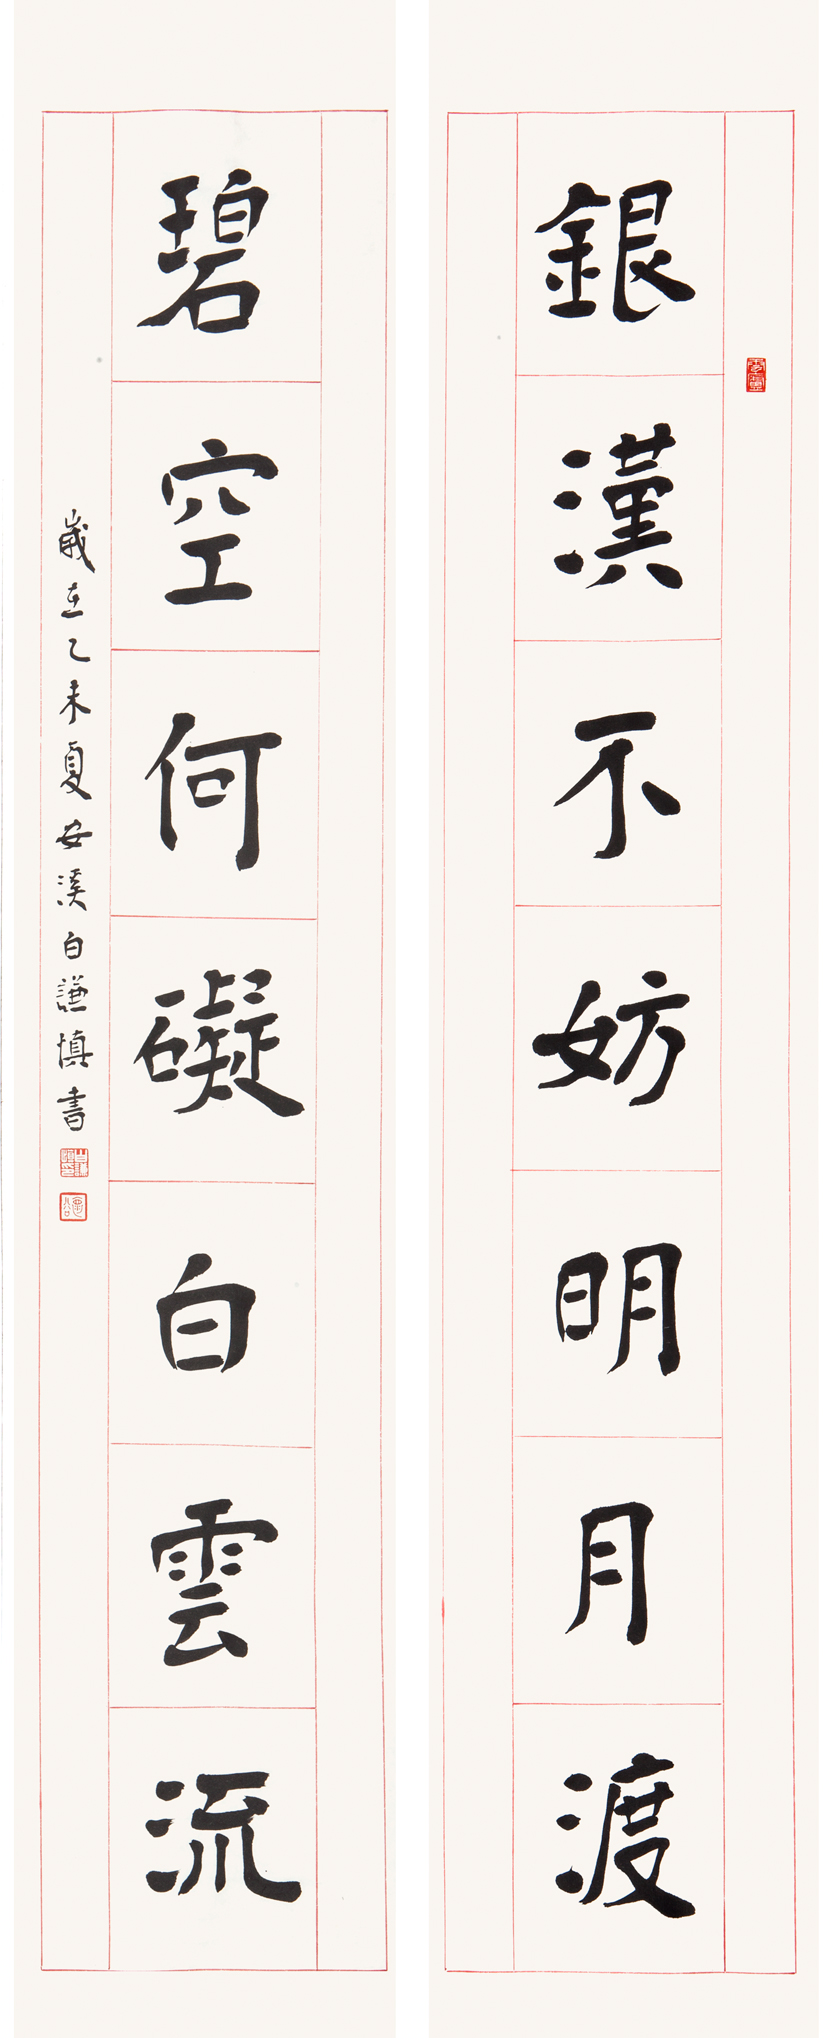 銀漢不妨明月渡
碧空何礙白雲流
歲在乙未夏安溪白謙慎書